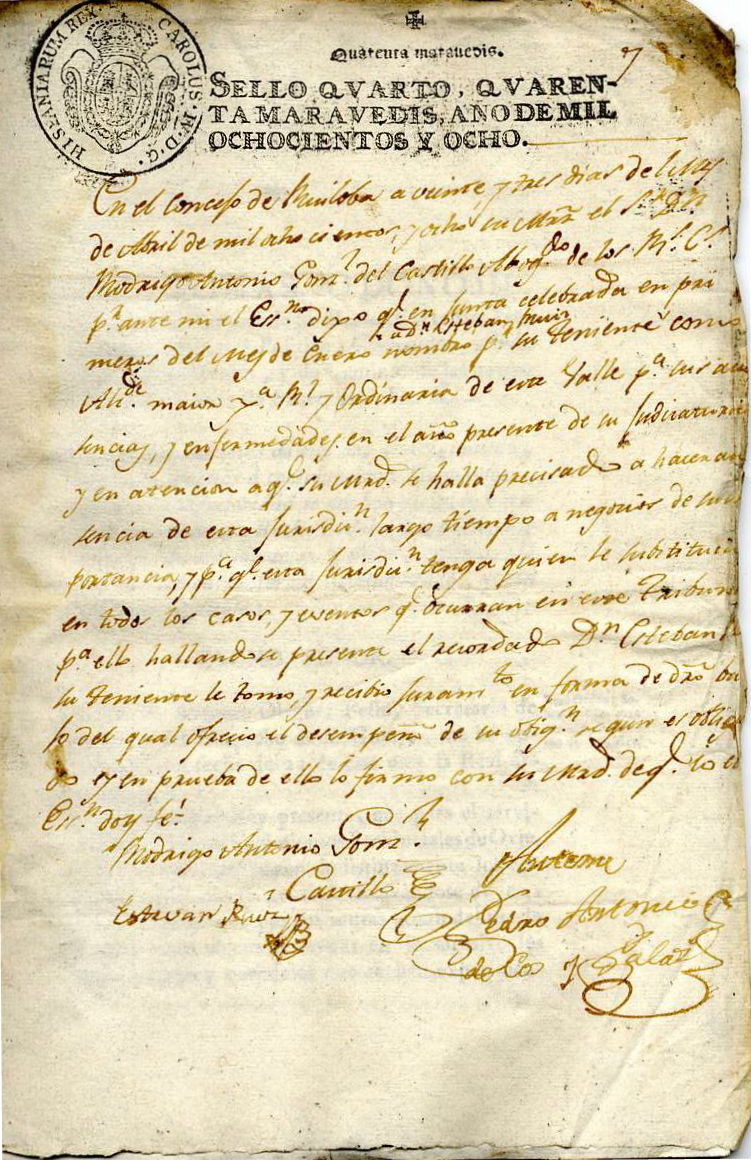 HISPANIARUM REX. CAROLUS. IV. D. G.
Quarenta maravedis.
7
SELLO QVARTO, QVAREN-
TA MARAVEDIS, AÑO DE MIL
OCHOCIENTOS Y OCHO.
En el Concejo de Ruiloba a veinte y tres dias del Mes
de Abril de mil ocho cientos, y ocho su Mrd el Sr Dn
Rodrigo Antonio Gonz.l del Castillo Abog.do de los Rs. Cs.
pr ante mi el Essno dixo ql. en Junta celebrada en pri
a Dn Esteban Ruiz
meros del Mes de Enero nombro pr su teniente como
Alcde. maior pa. Rl. y Ordinaria de este Valle pa. sus au
sencias, y enfermedades en el año presente de su Judicatura
y en atencion a q.l su Mrd. se halla precisado a hacer au
sencia de esta Jurisdicn. largo tiempo a negocios de su im
portancia, y pa ql. esta Jurisdicn. tenga quien le substituia
en todos los casos, y eventos ql. ocurran en este Tribunal
pa ello hallandose presente el recordado Dn Esteban
su teniente le tomo y recibio Juramto. en forma de dro. ba
jo del qual ofrecio el desempeño de su obign. segun es obliga
do e y en prueba de ello lo firmo con su Mrd. de ql. Yo el
Essno doy fe.
Rodrigo Antonio Gonz.l
Castillo
Estevan Ruiz
Ante mi
Pedro Antonio
de Cos y